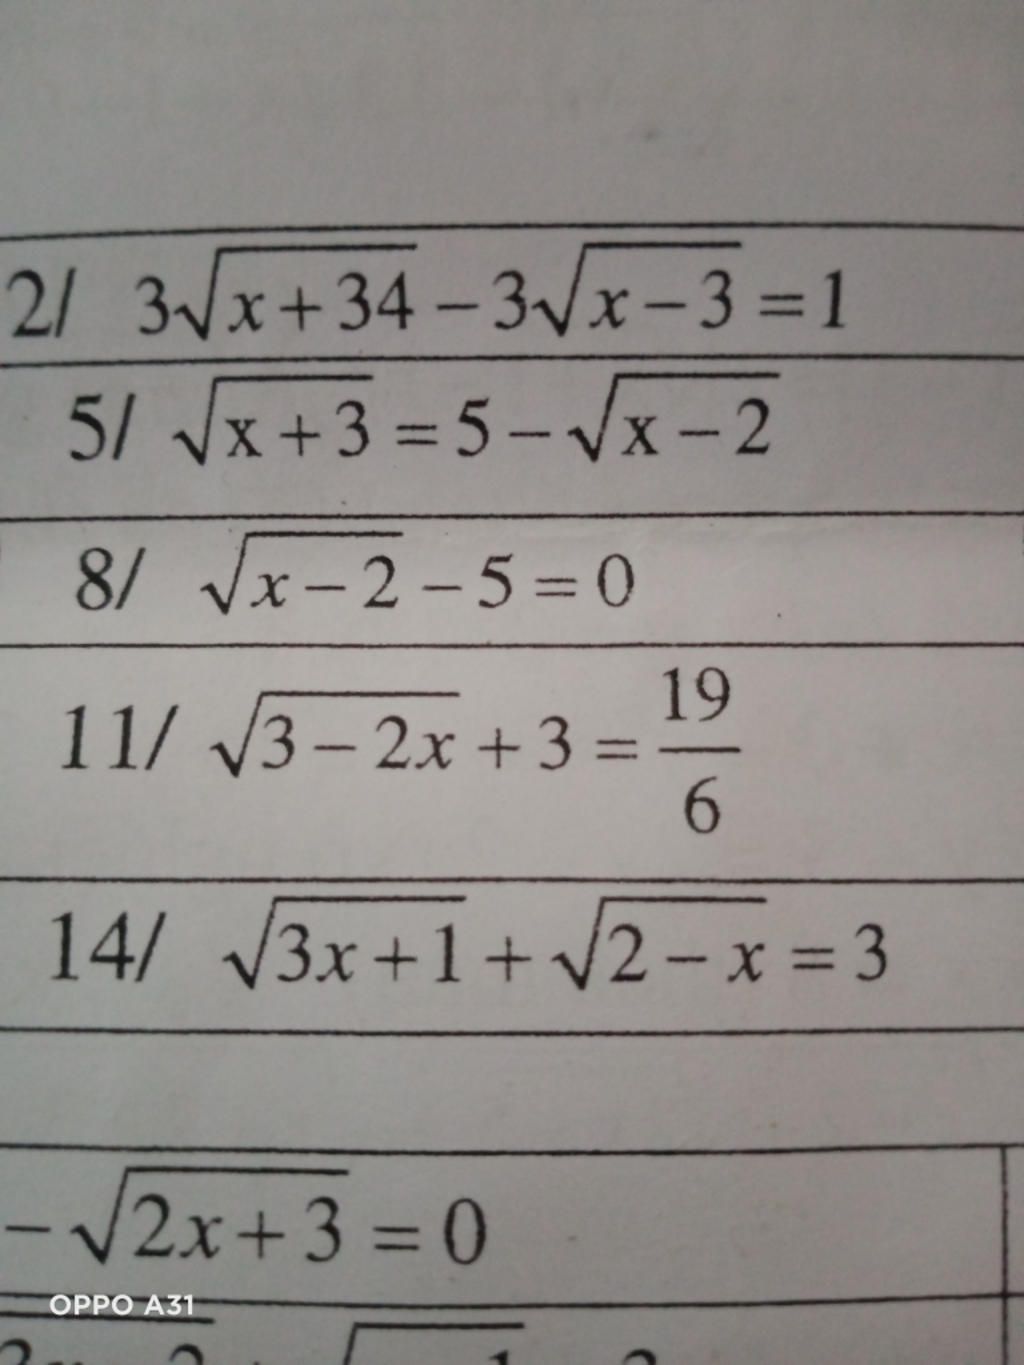 2/ 3√(x+34) − 3√(x−3) = 1
5/ √(x+3) = 5 − √(x−2)
8/ √(x−2) − 5 = 0
11/ √(3−2x) + 3 = 19/6
14/ √(3x+1) + √(2−x) = 3
−√(2x+3) = 0
OPPO A31